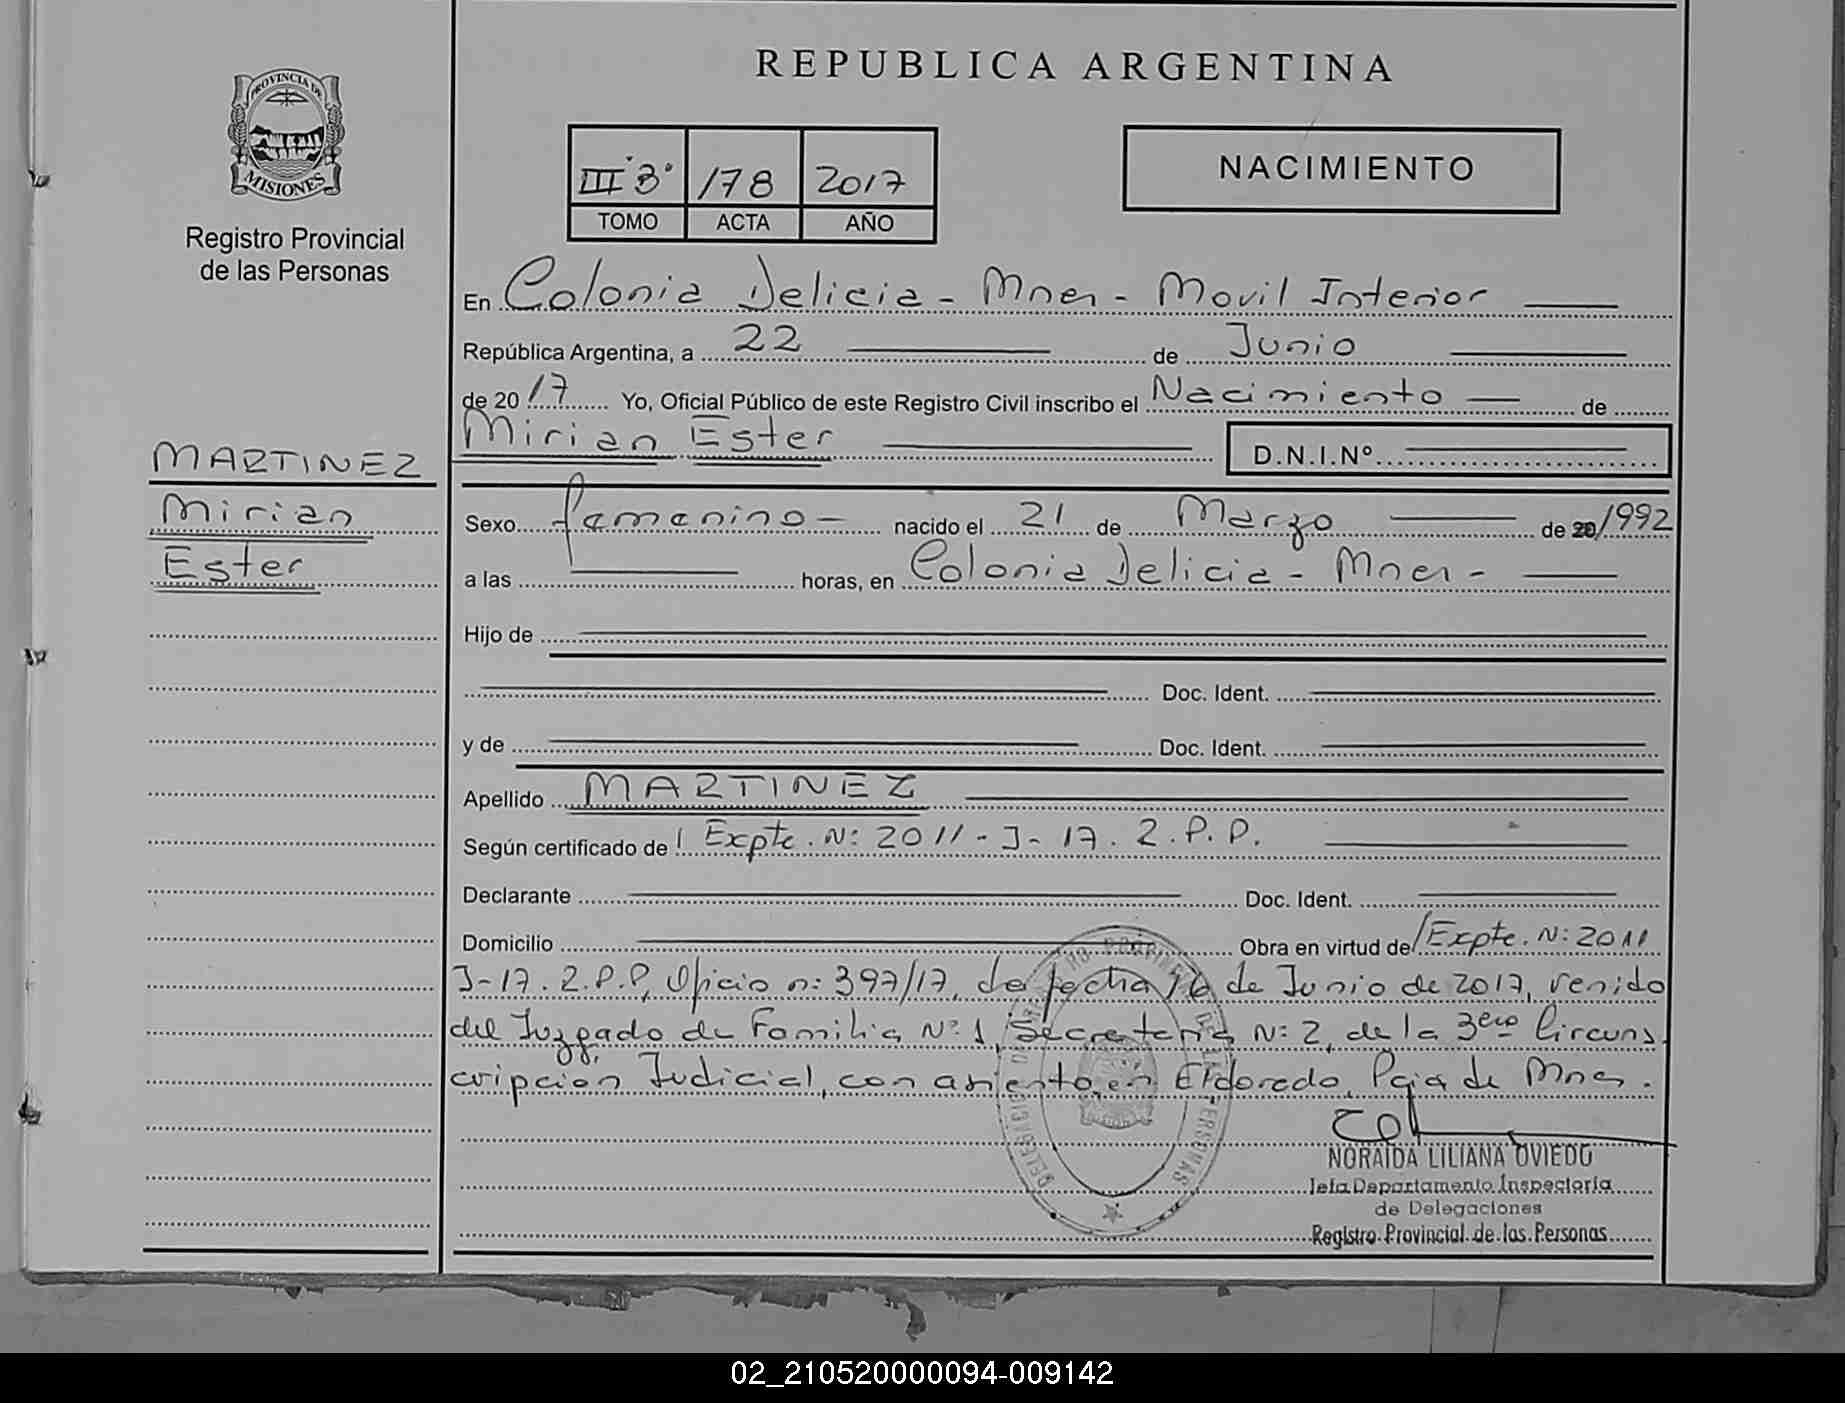 PROVINCIA DE
MISIONES
Registro Provincial
de las Personas
MARTINEZ
Mirian
Ester
REPUBLICA ARGENTINA
III°B° 178 2017
TOMO ACTA AÑO
NACIMIENTO
En Colonia Delicia - Mnes - Movil Interior
República Argentina, a 22 de Junio
de 2017 Yo, Oficial Público de este Registro Civil inscribo el Nacimiento de
Mirian Ester D.N.I.Nº
Sexo femenino - nacido el 21 de Marzo de 20/1992
a las horas, en Colonia Delicia - Mnes -
Hijo de
Doc. Ident.
y de Doc. Ident.
Apellido MARTINEZ
Según certificado de / Expte. Nº: 2011 - J - 17. 2. P. P.
Declarante Doc. Ident.
Domicilio Obra en virtud de /Expte. Nº: 2011
J-17. 2.P.P, Oficio nº: 397/17, de fecha 16 de Junio de 2017, venido
del Juzgado de Familia Nº 1, Secretaria Nº: 2, de la 3era Circuns
cripción Judicial, con asiento en Eldorado, Pcia de Mnes.
NORAIDA LILIANA OVIEDO
Jefa Departamento Inspectoría
de Delegaciones
Registro Provincial de las Personas
02_210520000094-009142